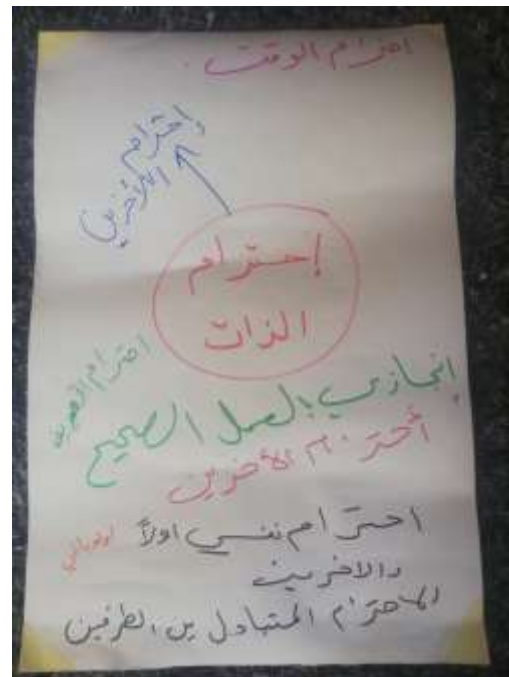 احترام الوقت.
إحترام
الآخرين
إحترام
الذات
احترام
إنجازي بالعمل الصحيح
أحترم الآخرين
احترام نفسي اولاً
والاخرين
الاحترام المتبادل بين الطرفين